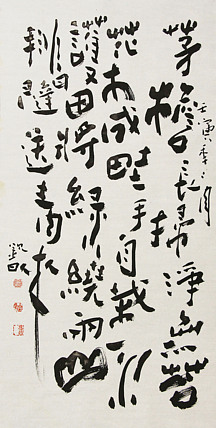 茅檐長掃淨無苔
花木成畦手自栽一水
護田將綠繞兩山
排闥送青來
壬寅